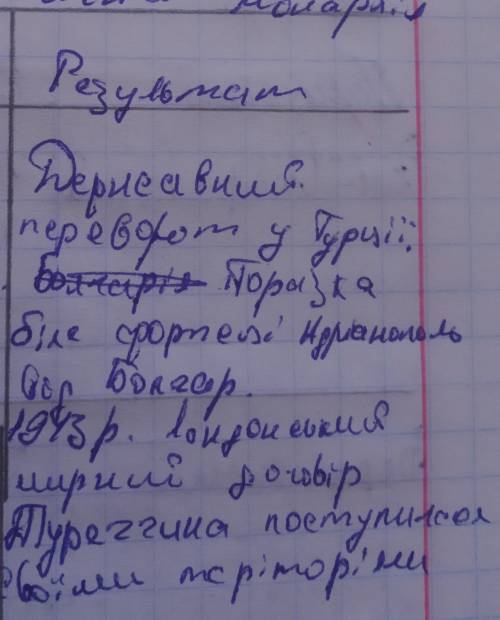 монархія
Результат
Державний
переворот у Турції.
Болгарія Поразка
біля фортеці Адріанополь
від Болгар.
1913р. Лондонський
мирний договір
Туреччина поступилася
своїми теріторіями